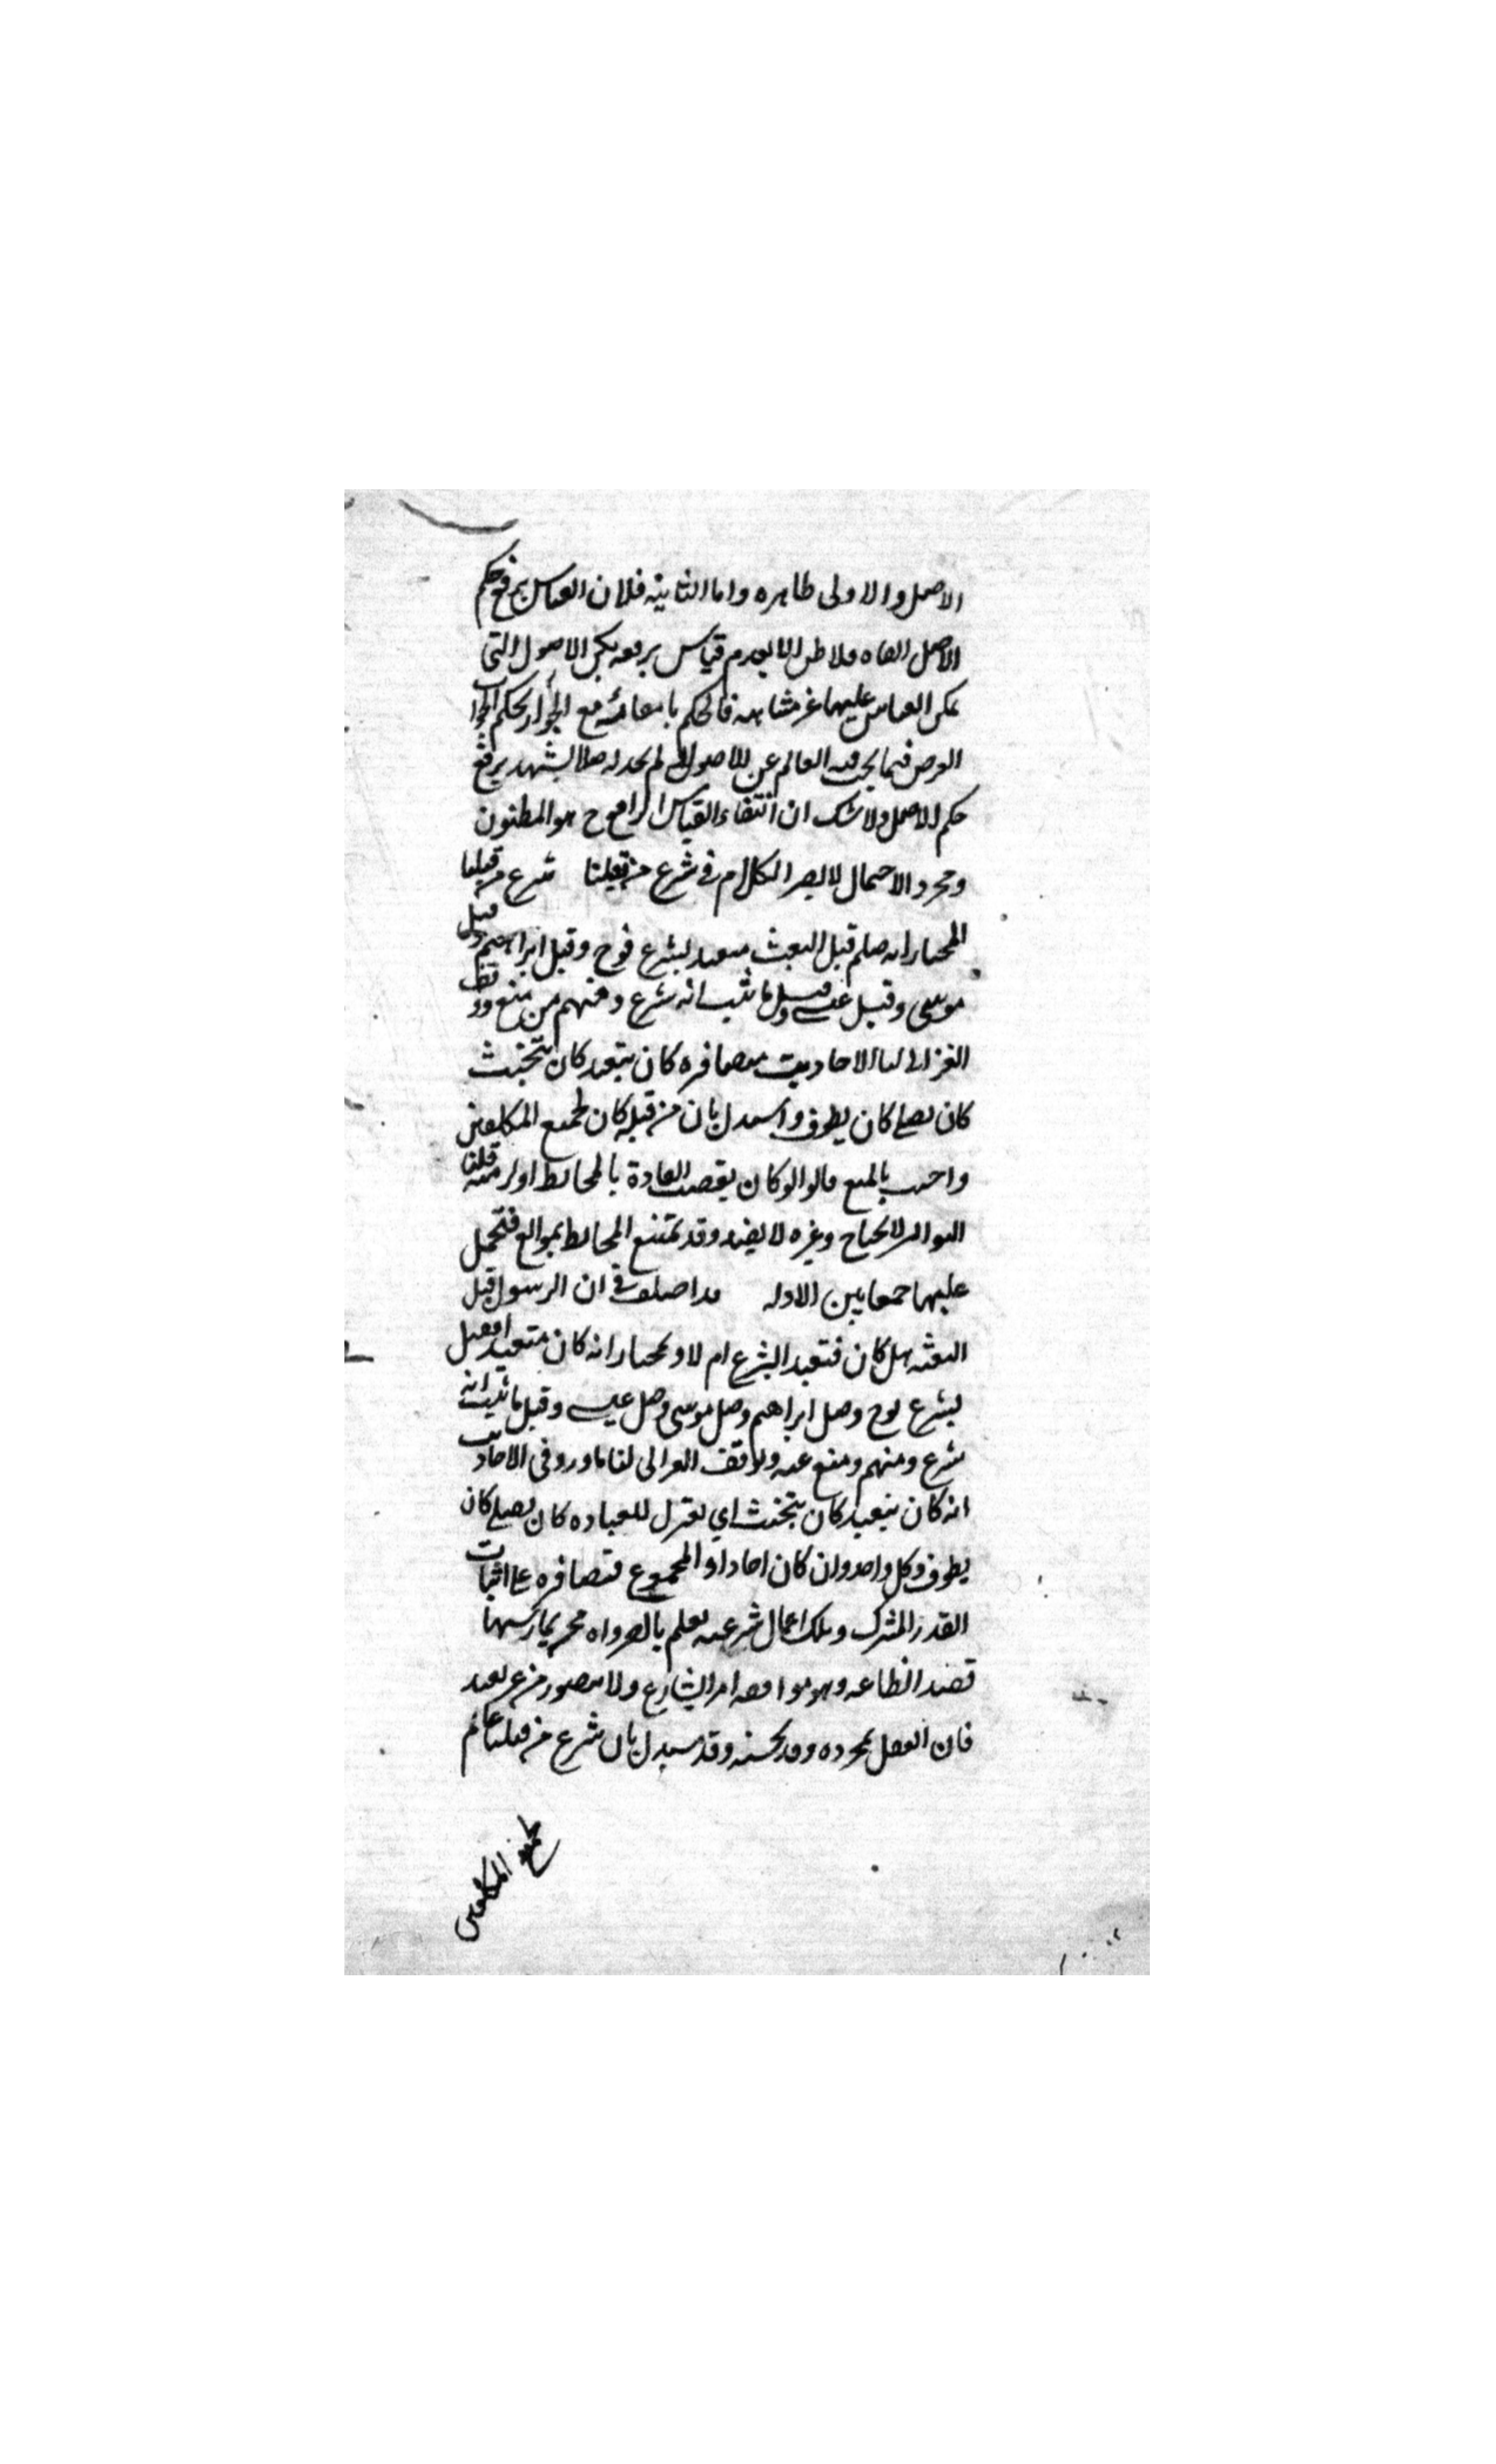 الاصل والاولى ظاهره واما الثانيه فلان القياس يرفع حكم
الاصل اتفاقا فلا ظن الا بعدم قياس يرفعه لكن الاصول التى
يمكن القياس عليها غير متناهيه فالحكم بانتفائه مع الجواز تحكم الجواب
الفرض فيما بحث فيه العالم عن الاصول لم يجد له اصلا يشهد برفع
حكم الاصل ولا شك ان انتفاء القياس الرافع ح هو المظنون
ومجرد الاحتمال لا يضر الكلام فى شرع من قبلنا شرع من قبلنا
المختار انه صلم قبل البعث متعبد بشرع نوح وقيل ابراهيم وقيل
موسى وقيل عيسى وقيل ما ثبت انه شرع ومنهم من منع ووقف
الغزالى لنا الاحاديث متضافره كان يتعبد كان يتحنث
كان يصلى كان يطوف واستدل بان من قبله كان لجميع المكلفين
واجيب بالمنع قالوا لو كان لقضت العادة بالمخالطه او لزمته قلنا
التواتر لا يحتاج وغيره لا يفيد وقد تمتنع المخالطه بموانع فتحمل
عليها جمعا بين الادله قد اختلف فى ان الرسول قبل
البعثه هل كان متعبدا بشرع ام لا والمختار انه كان متعبدا فقيل
بشرع نوح وقيل ابراهيم وقيل موسى وقيل عيسى وقيل ما ثبت انه
شرع ومنهم ومنع عنه وتوقف الغزالى لنا ما ورد فى الاحاديث
انه كان يتعبد كان يتحنث اى يعتزل للعباده كان يصلى كان
يطوف وكل واحد وان كان احادا والمجموع متضافره على اثبات
القدر المشترك وتلك اعمال شرعيه يعلم بالضروره ممن يمارسها
قصد الطاعه وهو موافقه امر الشارع ولا يتصور من غير تعبد
فان العقل بمجرده لا يحسنه وقد يستدل بان شرع من قبلنا عام
لجميع المكلفين